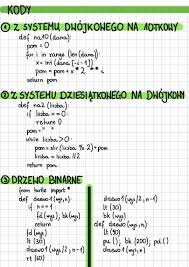 KODY
① Z SYSTEMU DWÓJKOWEGO NA
def na10(dana):
pom = 0
for i in range (len(dana)):
x = int (dana [-i-1])
pom = pom + x * 2 ** i
return pom
② Z SYSTEMU DZIESIĄTKOWEGO NA DWÓJKOWY
def na2 (liczba):
if liczba == 0:
return 0
pom = ""
while liczba > 0:
pom = str (liczba % 2) + pom
liczba = liczba // 2
return pom
③ DRZEWO BINARNE
from turtle import *
def drzewo1 (wys, n):
if n == 1:
fd (wys); bk (wys)
return
fd (wys)
lt (30)
drzewo1 (wys/2, n-1)
rt (60)
drzewo1 (wys/2, n-1)
lt (30)
bk (wys)
def drzewo (wys, n):
lt (90)
pu (); bk (200); pd ()
drzewo1 (wys, n)